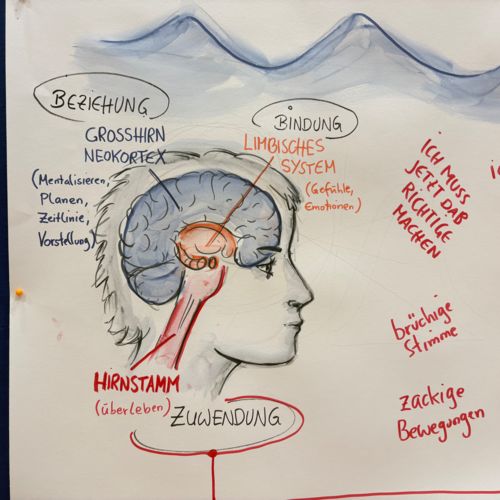 BEZIEHUNG
GROSSHIRN
NEOKORTEX
(Mentalisieren,
Planen,
Zeitlinie,
Vorstellung)
BINDUNG
LIMBISCHES
SYSTEM
(Gefühle,
Emotionen)
HIRNSTAMM
(überleben)
ZUWENDUNG
ICH MUSS
JETZT DAß
RICHTIGE
MACHEN
brüchige
Stimme
zackige
Bewegungen